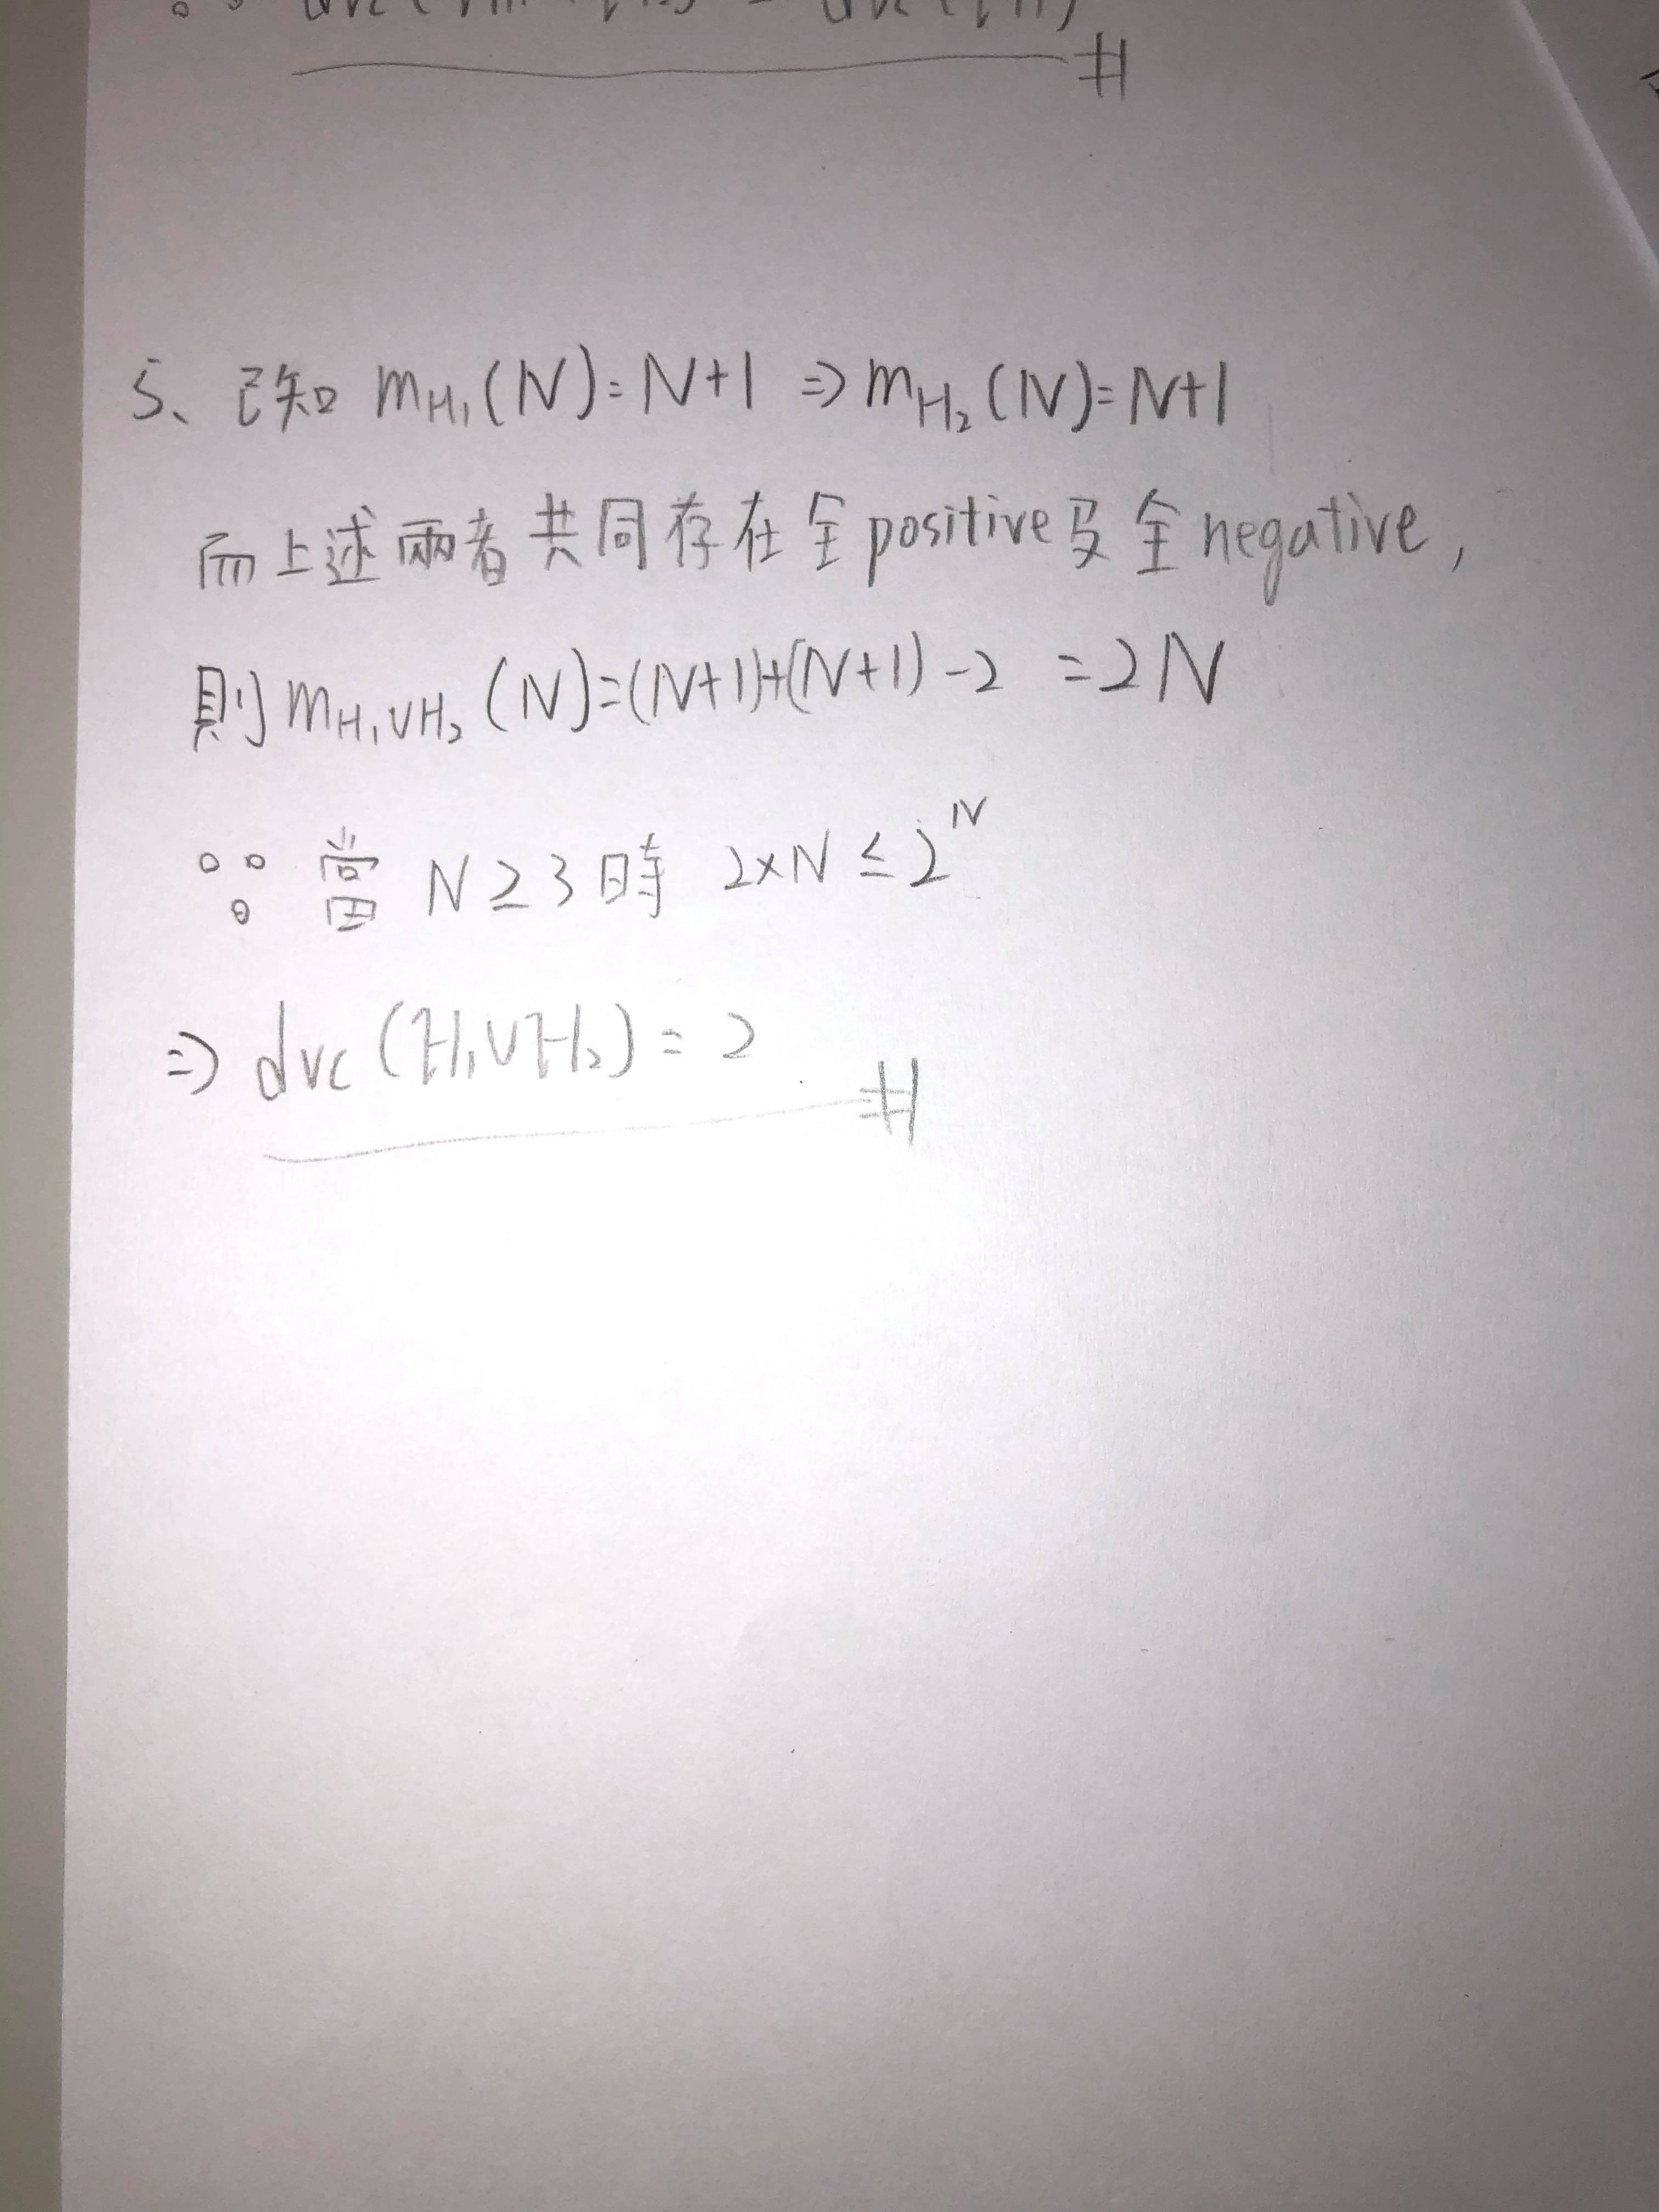 5、已知 mH₁(N)=N+1 ⇒ mH₂(N)=N+1
而上述兩者共同存在全positive及全negative,
則 mH₁∪H₂(N)=(N+1)+(N+1)-2 =2N
∵ 當 N≥3時 2×N ≤ 2^N
⇒ dvc(H₁∪H₂)=2 #